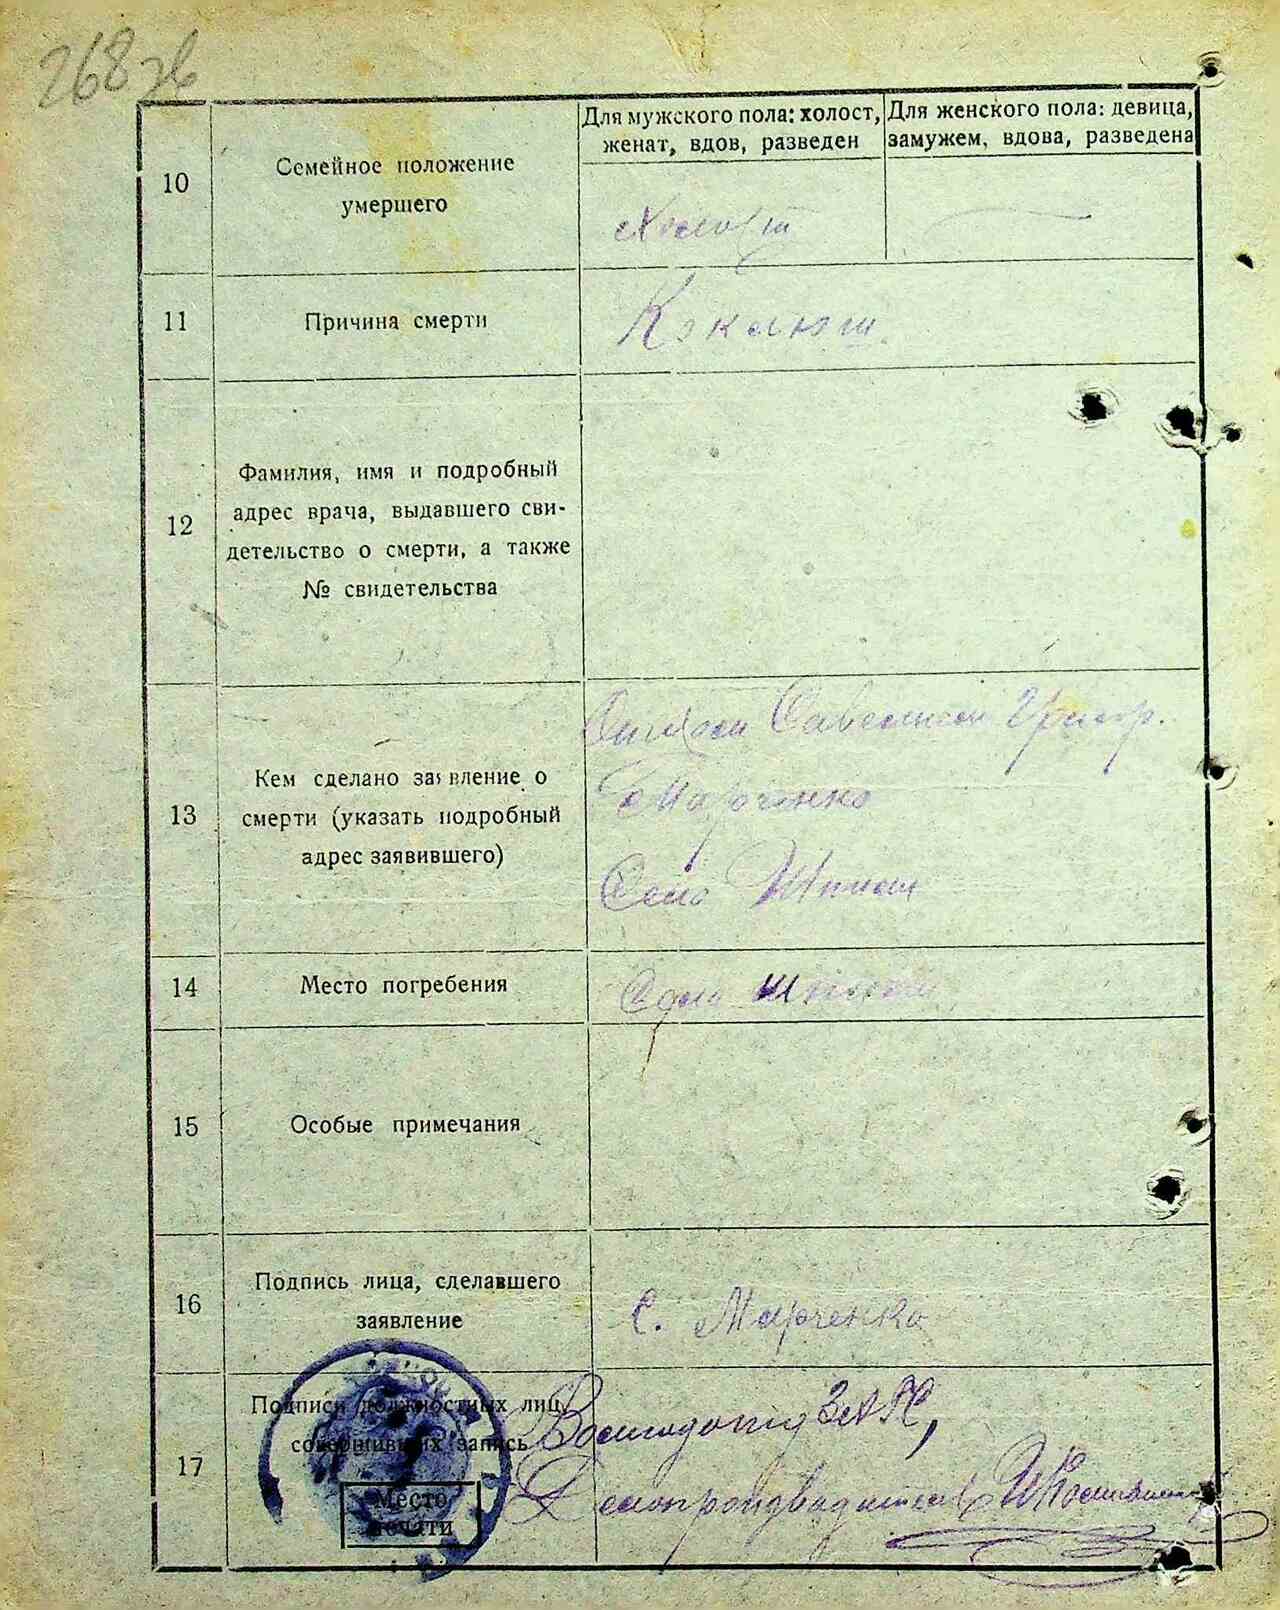 268 зв
10
Семейное положение
умершего
Для мужского пола: холост,
женат, вдов, разведен
Для женского пола: девица,
замужем, вдова, разведена
Холост
11
Причина смерти
Коклюш
12
Фамилия, имя и подробный
адрес врача, выдавшего сви-
детельство о смерти, а также
№ свидетельства
13
Кем сделано заявление о
смерти (указать подробный
адрес заявившего)
Григор.
Марченко
Село
14
Место погребения
Село
15
Особые примечания
16
Подпись лица, сделавшего
заявление
С. Марченко
17
Подписи должностных лиц,
совершивших запись
Место
печати
ЗАГС,
Делопроизводитель